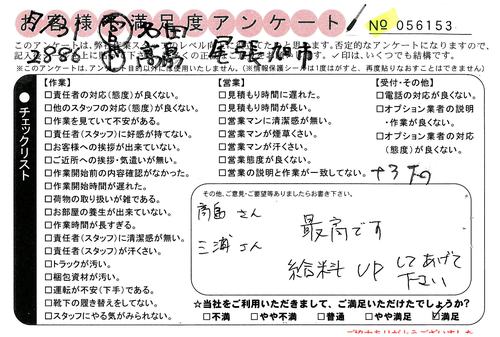 お客様満足度アンケート
No 056153
7/31
3886
尾張旭市
このアンケートは、弊社
ています。否定的なアンケートになりますので、
記入
の正
ご
✓印は、いくつでも結構です。
※このアンケートは、アンケート目的以外に使用いたしません。（※情報保護シールは1度はがすと、再度貼りなおすことはできません）
●チェックリスト
【作業】
□責任者の対応（態度）が良くない。
□他のスタッフの対応（態度）が良くない。
□作業を見ていて不安がある。
□責任者（スタッフ）に好感が持てない。
□お客様への挨拶が出来ていない。
□ご近所への挨拶・気遣いが無い。
□作業開始前の内容確認がなかった。
□作業開始時間が遅れた。
□荷物の取り扱いが雑である。
□お部屋の養生が出来ていない。
□作業時間が長すぎる。
□責任者（スタッフ）に清潔感が無い。
□責任者（スタッフ）が汗くさい。
□トラックが汚い。
□梱包資材が汚い。
□運転が不安（下手）である。
□靴下の履き替えをしてない。
□スタッフにやる気がみられない。
【営業】
□見積もり時間に遅れた。
□見積もり時間が長い。
□営業マンに清潔感が無い。
□営業マンが煙草くさい。
□営業マンが汗くさい。
□営業態度が良くない。
□営業の説明と作業が一致してない。
【受付・その他】
□電話の対応が良くない。
□オプション業者の説明
・作業が良くない。
□オプション業者の対応
（態度）が良くない。
その他、ご意見・ご要望等ありましたらお書き下さい。
高島さん
三浦さん
最高です
給料UPしてあげて
下さい
☆当社をご利用いただきまして、ご満足いただけたでしょうか？
□不満 □やや不満 □普通 □やや満足 ☑満足
ご協力ありがとうございました